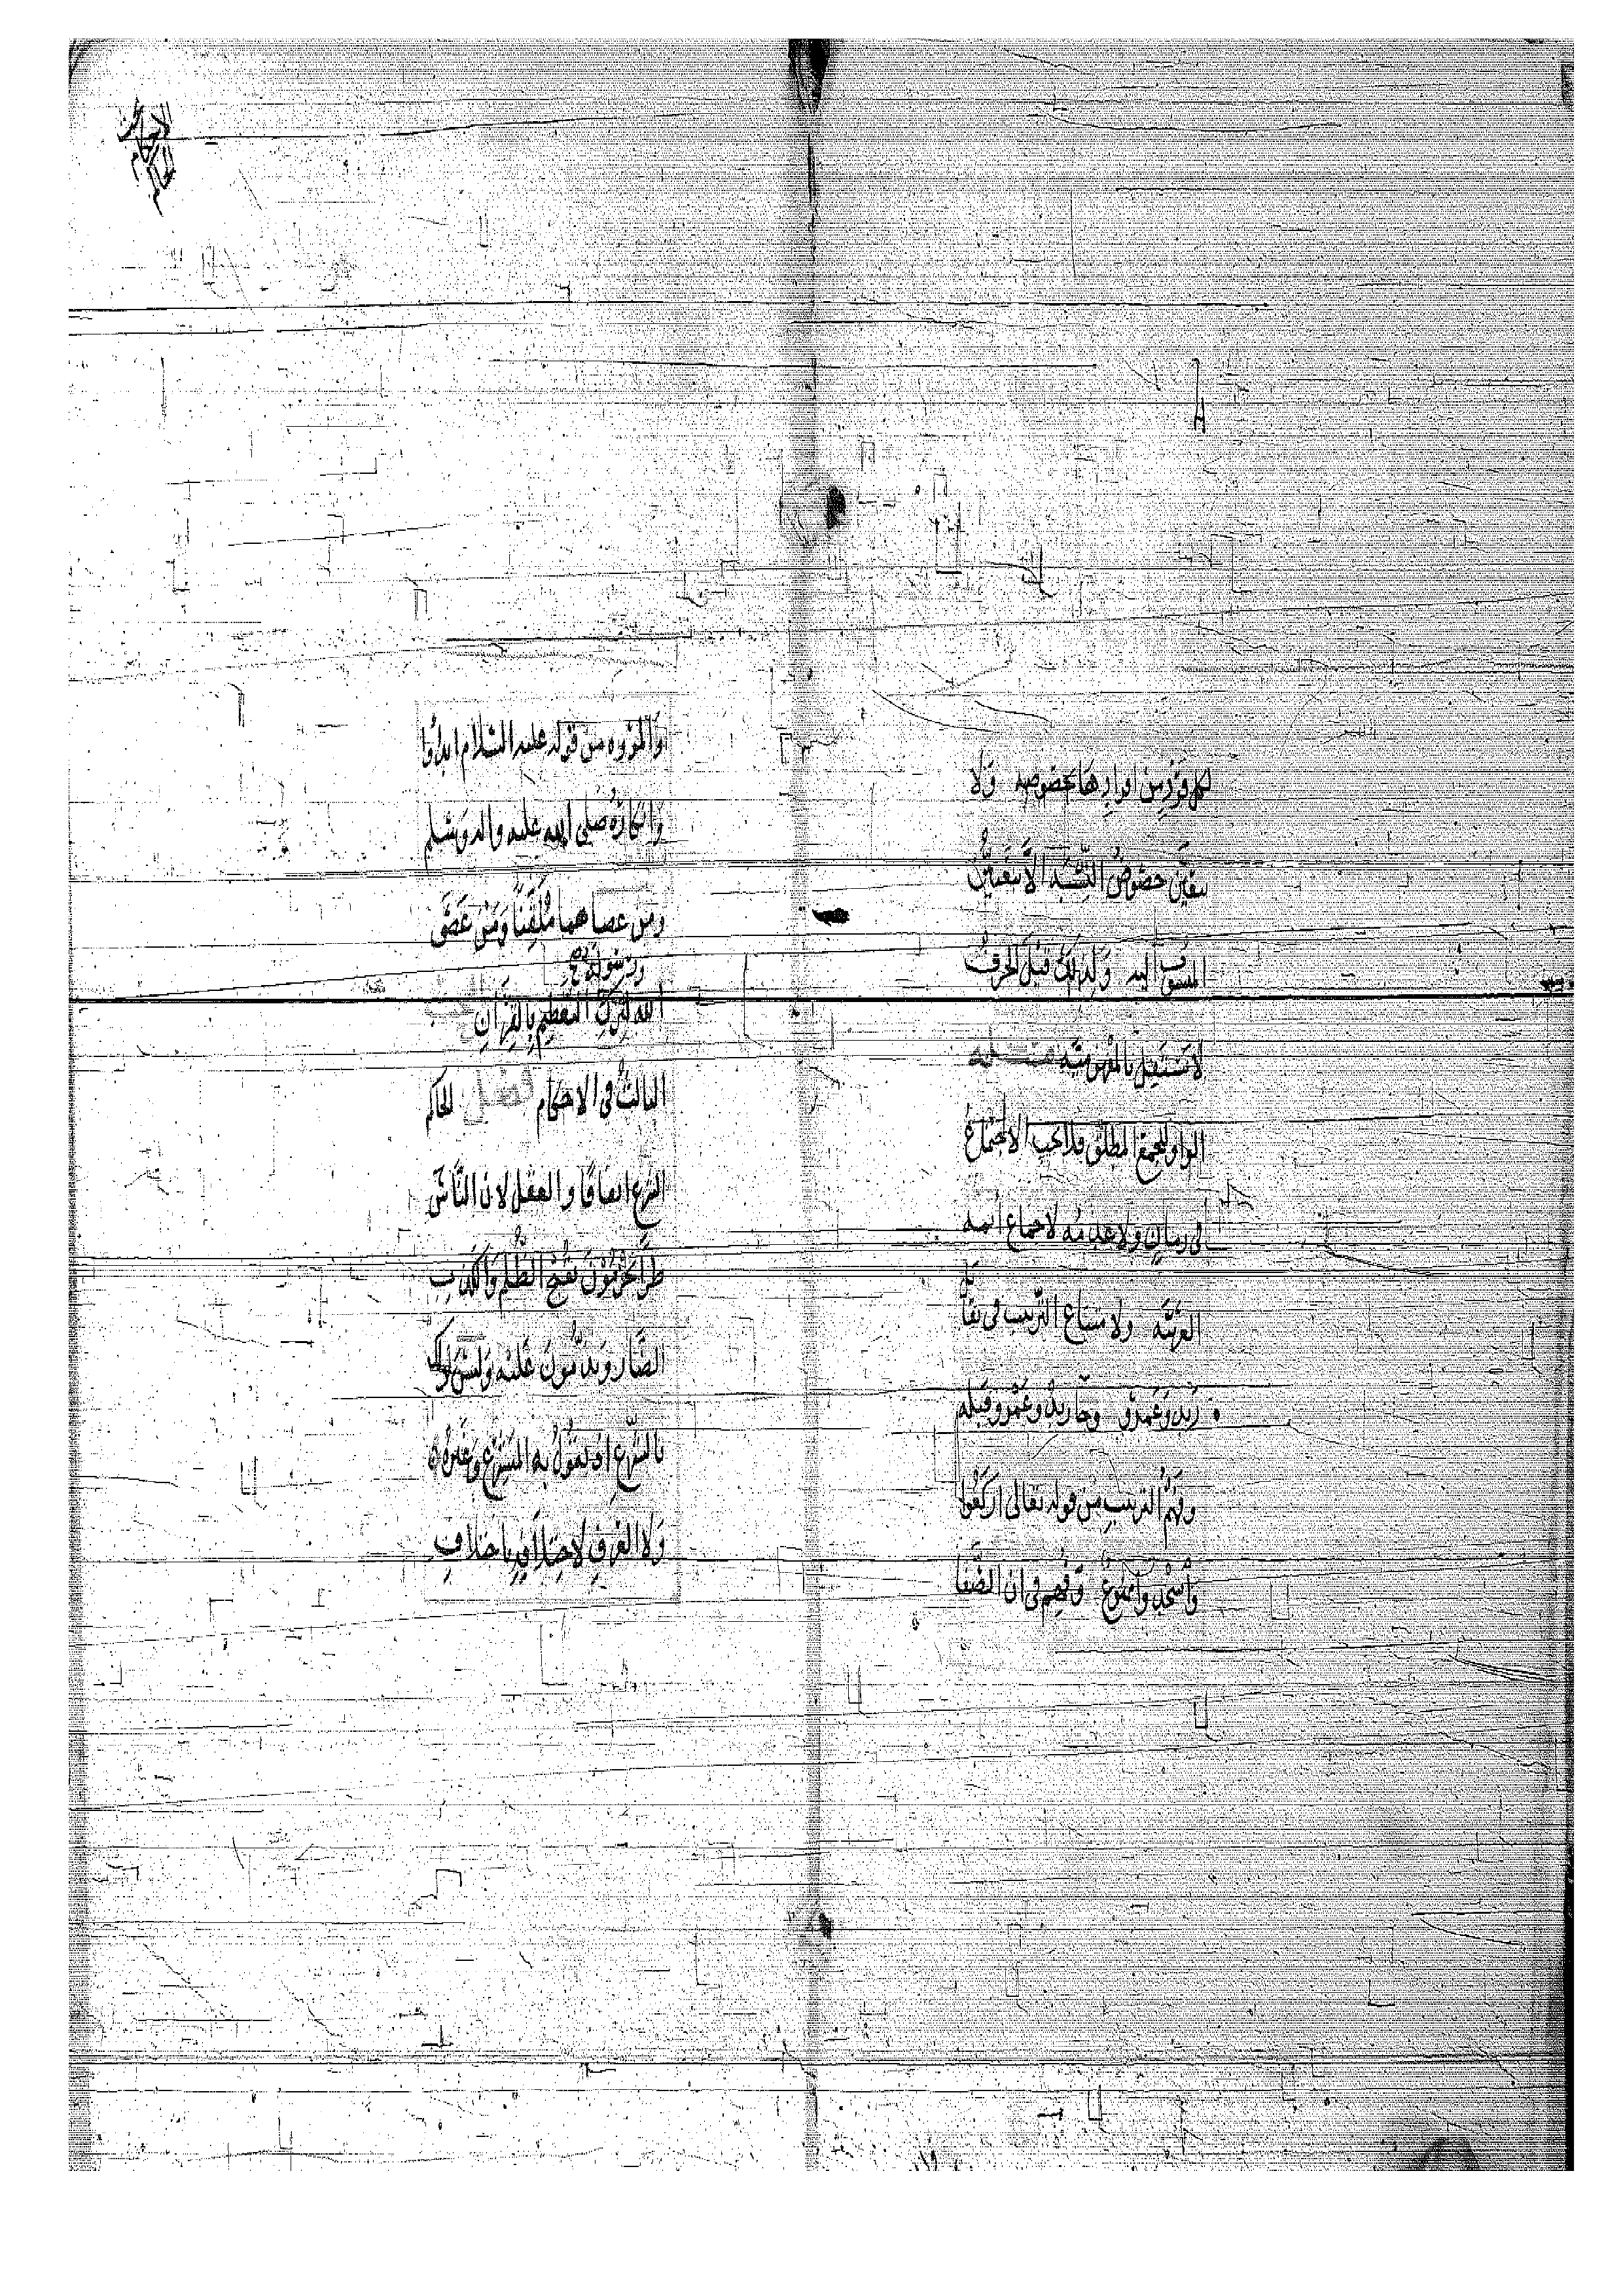 لكل فرد من افرادها بخصوصه ولا
يتعين خصوص النسبة الا بتعين
المنسوب اليه ولذلك قيل الحرف
لا يستقل بالمفهومية
الواو للجمع المطلق فلا يجب الاجتماع
في زمان ولا عدمه لاجماع ائمة
العربية ولامتناع الترتيب في تقاتل
زيد وعمرو وجا زيد وعمرو قبله
وفهم الترتيب من قوله تعالى اركعوا
واسجدوا وفهم في ان الصفا
والمروة من قوله عليه السلام ابدؤا
وانكاره صلى الله عليه واله وسلم
ومن عصاهما ملقنا ومن عصى
الله ورسوله لترك التعظيم بالقران
الثالث في الاحكام فصل الحاكم
الشرع اتفاقا والعقل لان الناس
طرا يجزمون بقبح الظلم والكذب
الضار ويذمون عليه وليس ذلك
بالشرع اذ يقول به المتشرع وغيره
ولا العرف لاختلافه باختلاف